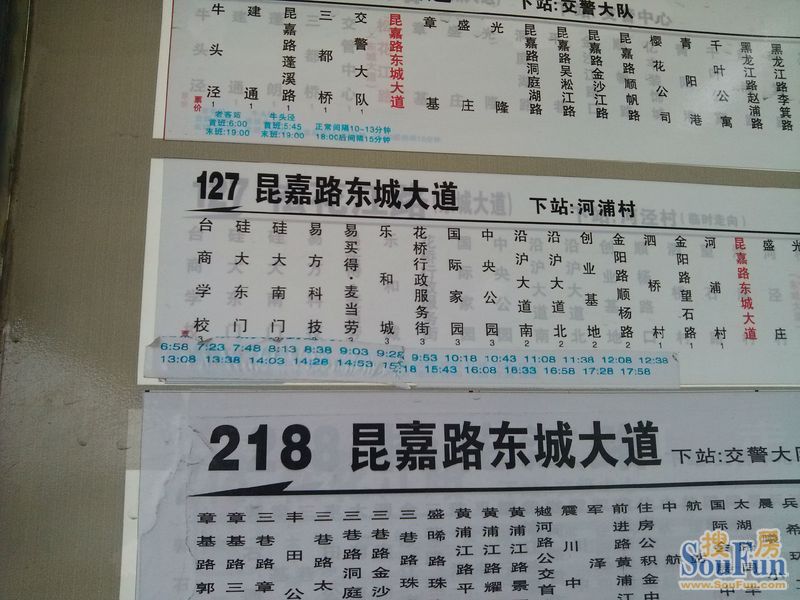 下站:交警大队
牛头泾
建通
昆嘉路蓬溪路
三都桥
交警大队
昆嘉路东城大道
章基
盛庄
光隆
昆嘉路洞庭湖路
昆嘉路吴淞江路
昆嘉路金沙江路
昆嘉路顺帆路
樱花公司
青阳港
千叶公寓
黑龙江路赵浦路
黑龙江路李箕路
票价 1 1 1 1 1 1 1
老客站 牛头泾
首班:6:00 首班:5:45 正常间隔10-13分钟
末班:19:00 末班:19:00 18:00后间隔15分钟
127 昆嘉路东城大道 下站:河浦村
台商学校
硅大东门
硅大南门
易方科技
易买得·麦当劳
乐和城
花桥行政服务街
国际家园
中央公园
沿沪大道南
沿沪大道北
创业基地
金阳路顺杨路
泗桥村
金阳路望石路
河浦村
昆嘉路东城大道
盛庄
光
3 3 3 3 3 3 3 3 3 2 2 2 2 1 1 1
6:58 7:23 7:48 8:13 8:38 9:03 9:28 9:53 10:18 10:43 11:08 11:38 12:08 12:38
13:08 13:38 14:03 14:28 14:53 15:18 15:43 16:08 16:33 16:58 17:28 17:58
218 昆嘉路东城大道 下站:交警大队
章基路郭
章基路
三巷路章
丰田公
三巷路太
三巷路洞庭
三巷路珠
盛晞路珠
黄浦江路平
黄浦江路耀
黄浦江路景
樾河路公交首
震川中
军泽
前进路黄浦江
住房公积金中
中航
国际
太湖
兵希
搜房
SouFun
www.SouFun.com